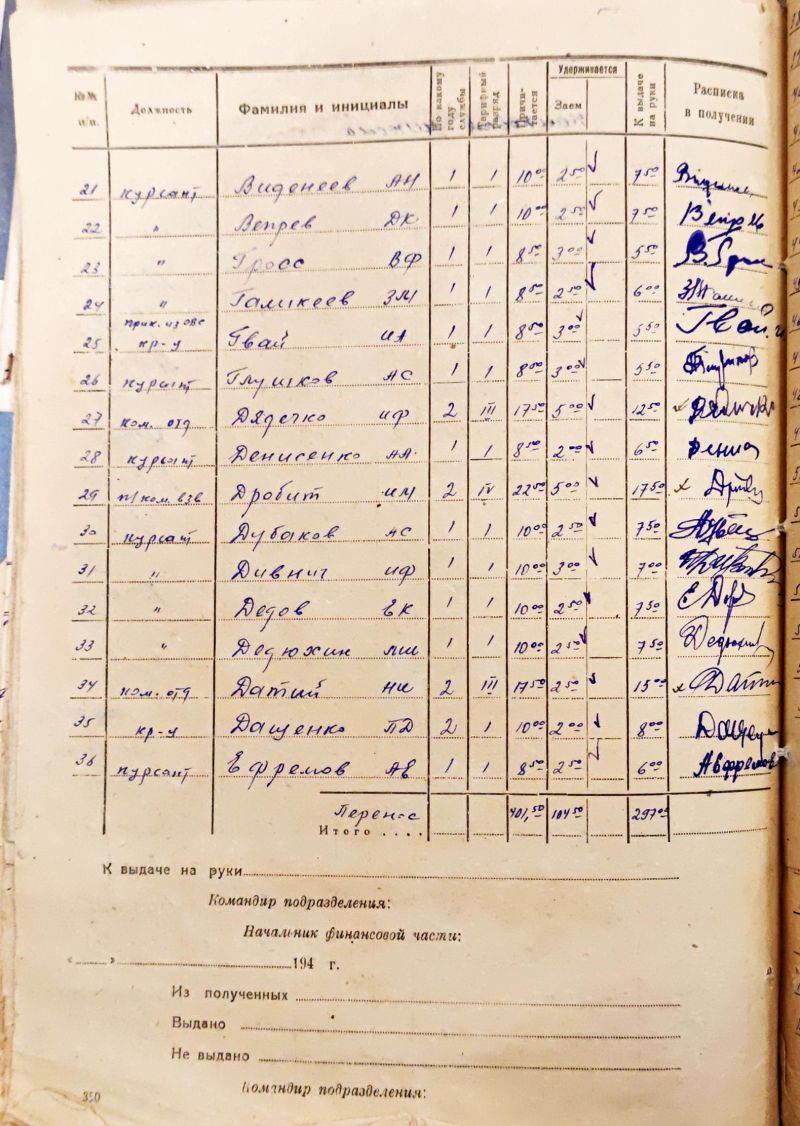 №№ п/п. Должность Фамилия и инициалы По какому году службы Тарифный разряд Причитается Удерживается Заем К выдаче на руки Расписка в получении
21 курсант Виденеев АН 1 1 10 00 2 50 7 50
22 " Вепрев ДК 1 1 10 00 2 50 7 50
23 " Гросс ВФ 1 1 8 50 3 00 5 50
24 " Галикеев ЗМ 1 1 8 50 2 50 6 00
прик. из ОВС
25 кр-у Гвай ИА 1 1 8 50 3 00 5 50 Гвай
26 курсант Глушков АС 1 1 8 50 3 00 5 50
27 ком. отд Дядечко ИФ 2 III 17 50 5 00 12 50
28 курсант Денисенко АА. 1 1 8 50 2 00 6 50
29 п/ком. взв Дробит ИМ 2 IV 22 50 5 00 17 50
30 курсант Дубаков АС 1 1 10 00 2 50 7 50
31 " Дивнич ИФ 1 1 10 00 3 00 7 00
32 " Дедов ЕК 1 1 10 00 2 50 7 50
33 " Дедюхин 1 1 10 00 2 50 7 50
34 ком. отд Датий НК 2 III 17 50 2 50 15 00
35 кр-у Дащенко ПД 2 1 10 00 2 00 8 00
36 курсант Ефремов АВ 1 1 8 50 2 50 6 00
Перен-с 401,50 104 50 297 00
Итого ....
К выдаче на руки
Командир подразделения:
Начальник финансовой части:
« » 194 г.
Из полученных
Выдано
Не выдано
Командир подразделения:
350